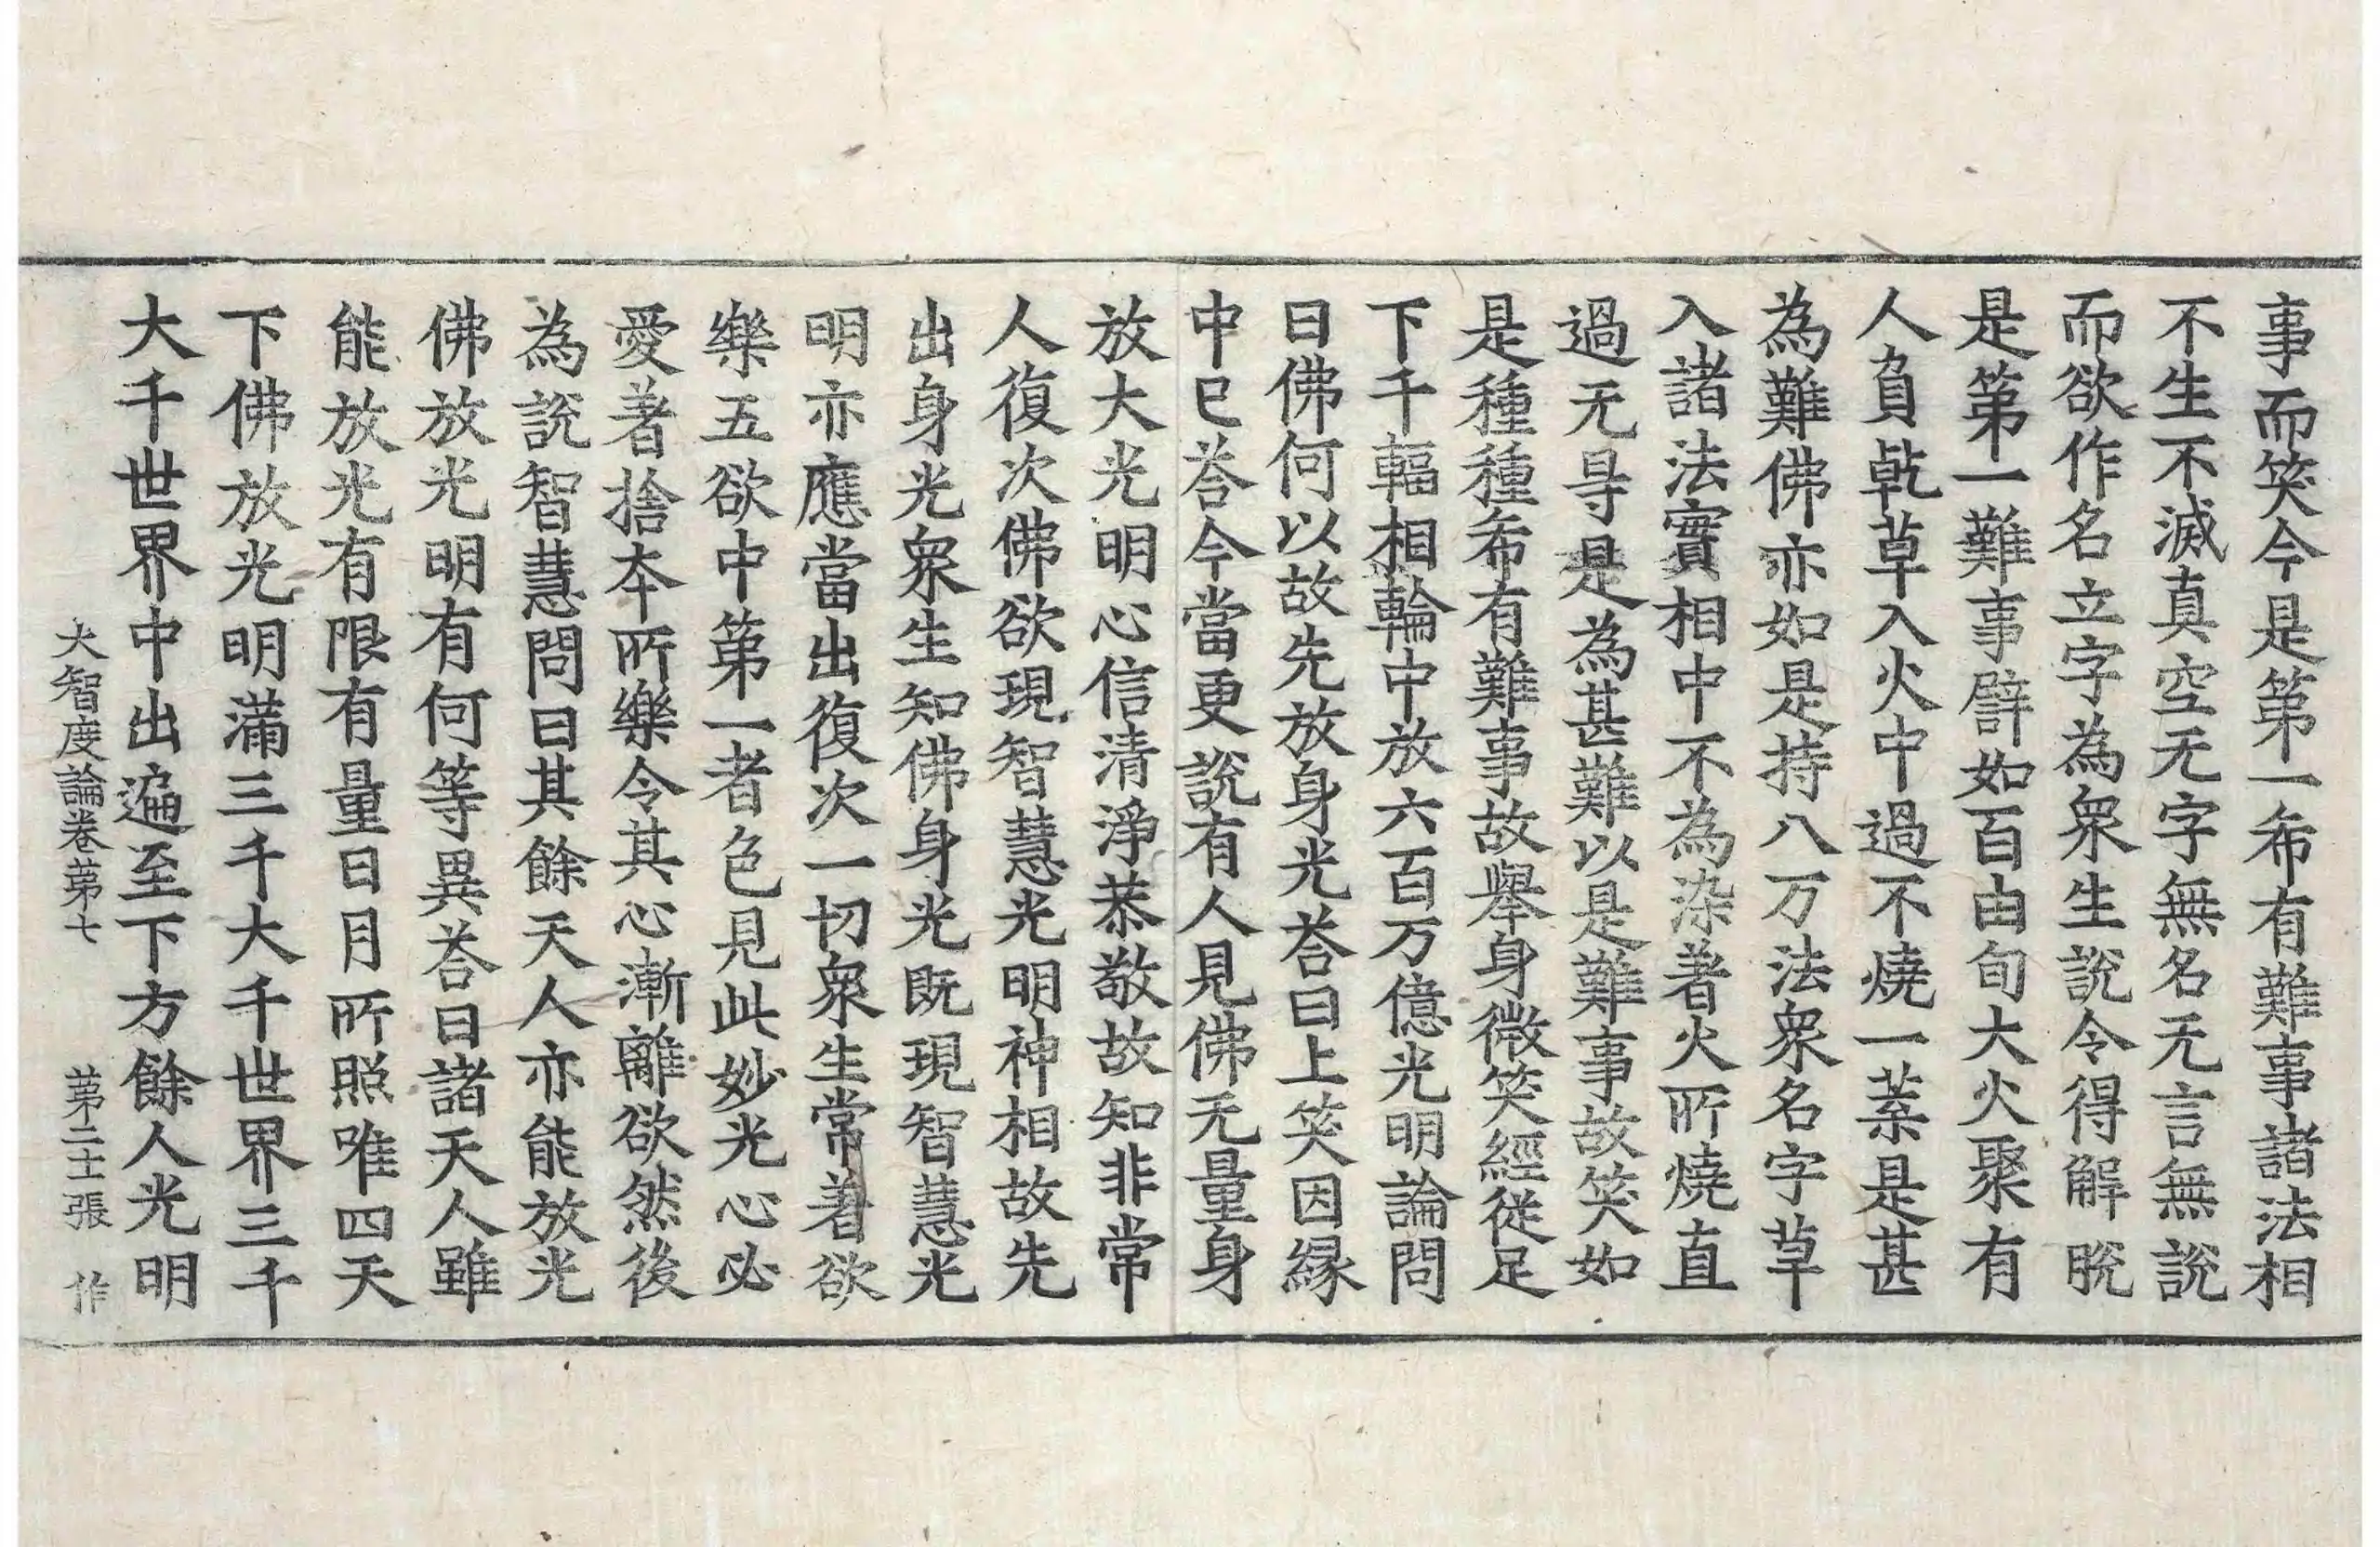 事而笑今是第一希有難事諸法相
不生不滅真空无字無名无言無說
而欲作名立字為衆生說令得解脫
是第一難事譬如百由旬大火聚有
人負乾草入火中過不燒一葉是甚
為難佛亦如是持八万法衆名字草
入諸法實相中不為染著火所燒直
過无㝵是為甚難以是難事故笑如
是種種希有難事故舉身微笑經從足
下千輻相輪中放六百万億光明論問
曰佛何以故先放身光荅曰上笑因緣
中已荅今當更說有人見佛无量身
放大光明心信清淨恭敬故知非常
人復次佛欲現智慧光明神相故先
出身光衆生知佛身光既現智慧光
明亦應當出復次一切衆生常著欲
樂五欲中第一者色見此妙光心必
愛著捨本所樂令其心漸離欲然後
為說智慧問曰其餘天人亦能放光
佛放光明有何等異荅曰諸天人雖
能放光有限有量日月所照唯四天
下佛放光明滿三千大千世界三千
大千世界中出遍至下方餘人光明
大智度論卷第七 第二十張 作